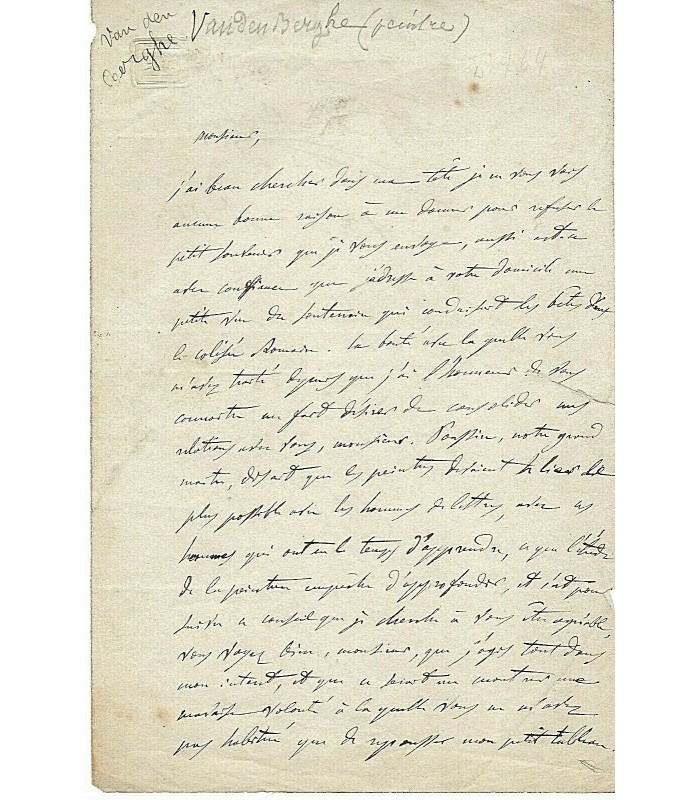 Van den
Berghe
VandenBerghe (peintre)
Monsieur,
j'ai beau chercher dans ma tête je ne vous vois
aucune bonne raison à me donner pour refuser le
petit souvenir que je vous envoye, aussi est-ce
avec confiance que j'adresse à votre domicile une
petite vue du souterrain qui conduisait les bêtes dans
le colisée Romain. la bonté avec laquelle vous
m'avez traité depuis que j'ai l'honneur de vous
connaitre me fait désirer de consolider mes
relations avec vous, monsieur. Poussin, notre grand
maitre, disait que les peintres devaient se lier le
plus possible avec les hommes de lettres, avec ces
hommes qui ont eu le temps d'apprendre, ce que l'étude
de la peinture empêche d'approfondir, et c'est pour
suivre ce conseil que je cherche à vous être agréable,
vous voyez bien, monsieur, que j'agis tout dans
mon intérêt, et que ce serait me montrer une
mauvaise volonté à laquelle vous ne m'avez
pas habitué que de repousser mon petit tableau.